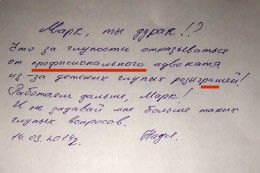 Марк, ты дурак!?
Что за глупости отказываться
от профисионального адвоката
из-за детских глупых розыгрышей!
Работаем дальше, Марк!
И не задавай мне больше таких
глупых вопросов.
14.03.2014г. Надя.